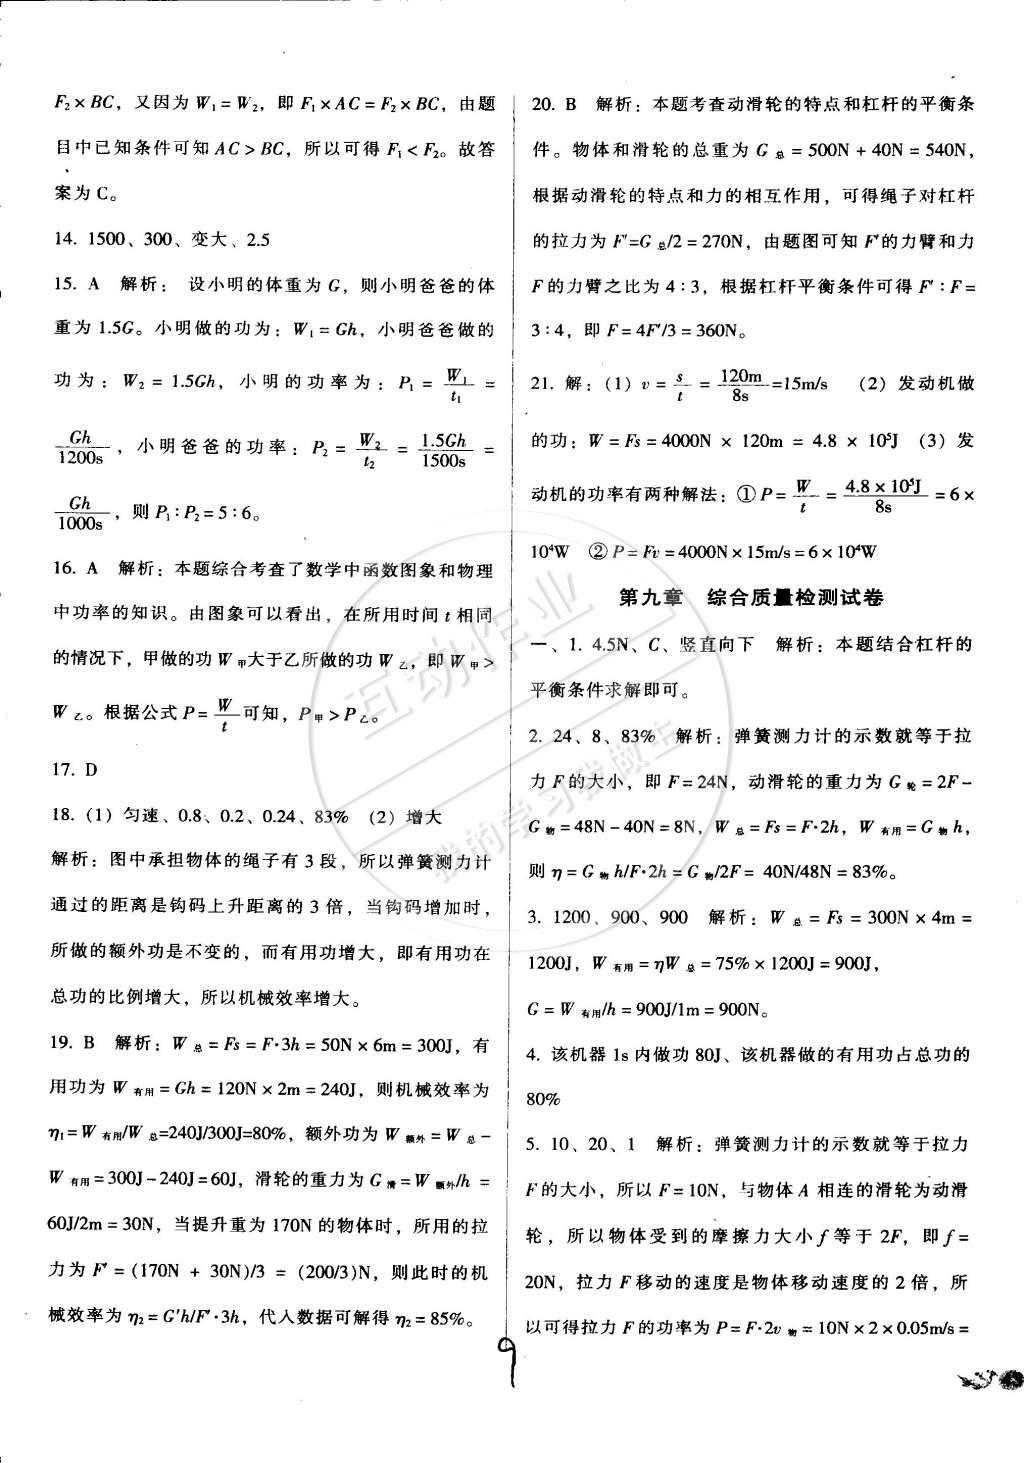 F₂×BC，又因为 W₁=W₂，即 F₁×AC=F₂×BC，由题
目中已知条件可知 AC>BC，所以可得 F₁<F₂。故答
案为 C。
14. 1500、300、变大、2.5
15. A 解析：设小明的体重为 G，则小明爸爸的体
重为 1.5G。小明做的功为：W₁=Gh，小明爸爸做的
功为：W₂=1.5Gh，小明的功率为：P₁=W₁/t₁=
Gh/1200s，小明爸爸的功率：P₂=W₂/t₂=1.5Gh/1500s=
Gh/1000s，则 P₁∶P₂=5∶6。
16. A 解析：本题综合考查了数学中函数图象和物理
中功率的知识。由图象可以看出，在所用时间 t 相同
的情况下，甲做的功 W甲大于乙所做的功 W乙，即 W甲>
W乙。根据公式 P=W/t可知，P甲>P乙。
17. D
18. (1) 匀速、0.8、0.2、0.24、83% (2) 增大
解析：图中承担物体的绳子有 3 段，所以弹簧测力计
通过的距离是钩码上升距离的 3 倍，当钩码增加时，
所做的额外功是不变的，而有用功增大，即有用功在
总功的比例增大，所以机械效率增大。
19. B 解析：W总=Fs=F·3h=50N×6m=300J，有
用功为 W有用=Gh=120N×2m=240J，则机械效率为
η₁=W有用/W总=240J/300J=80%，额外功为 W额外=W总-
W有用=300J-240J=60J，滑轮的重力为 G滑=W额外/h=
60J/2m=30N，当提升重为 170N 的物体时，所用的拉
力为 F′=(170N + 30N)/3 = (200/3)N，则此时的机
械效率为 η₂=G′h/F′·3h，代入数据可解得 η₂=85%。
20. B 解析：本题考查动滑轮的特点和杠杆的平衡条
件。物体和滑轮的总重为 G总=500N+40N=540N，
根据动滑轮的特点和力的相互作用，可得绳子对杠杆
的拉力为 F′=G总/2=270N，由题图可知 F′的力臂和力
F 的力臂之比为 4∶3，根据杠杆平衡条件可得 F′∶F=
3∶4，即 F=4F′/3=360N。
21. 解：(1) v=s/t=120m/8s=15m/s (2) 发动机做
的功：W=Fs=4000N×120m=4.8×10⁵J (3) 发
动机的功率有两种解法：①P=W/t=4.8×10⁵J/8s=6×
10⁴W ②P=Fv=4000N×15m/s=6×10⁴W
第九章 综合质量检测试卷
一、1. 4.5N、C、竖直向下 解析：本题结合杠杆的
平衡条件求解即可。
2. 24、8、83% 解析：弹簧测力计的示数就等于拉
力 F 的大小，即 F=24N，动滑轮的重力为 G轮=2F-
G物=48N-40N=8N，W总=Fs=F·2h，W有用=G物h，
则 η=G物h/F·2h=G物/2F=40N/48N=83%。
3. 1200、900、900 解析：W总=Fs=300N×4m=
1200J，W有用=ηW总=75%×1200J=900J，
G=W有用/h=900J/1m=900N。
4. 该机器 1s 内做功 80J、该机器做的有用功占总功的
80%
5. 10、20、1 解析：弹簧测力计的示数就等于拉力
F 的大小，所以 F=10N，与物体 A 相连的滑轮为动滑
轮，所以物体受到的摩擦力大小 f 等于 2F，即 f=
20N，拉力 F 移动的速度是物体移动速度的 2 倍，所
以可得拉力 F 的功率为 P=F·2v物=10N×2×0.05m/s=
互动作业
我的学习我做主
9